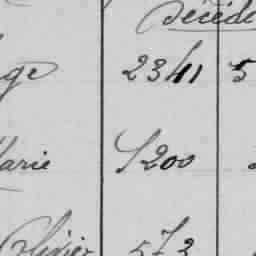 Décéde
ge 2341 5
Marie 1200
Olivier 573